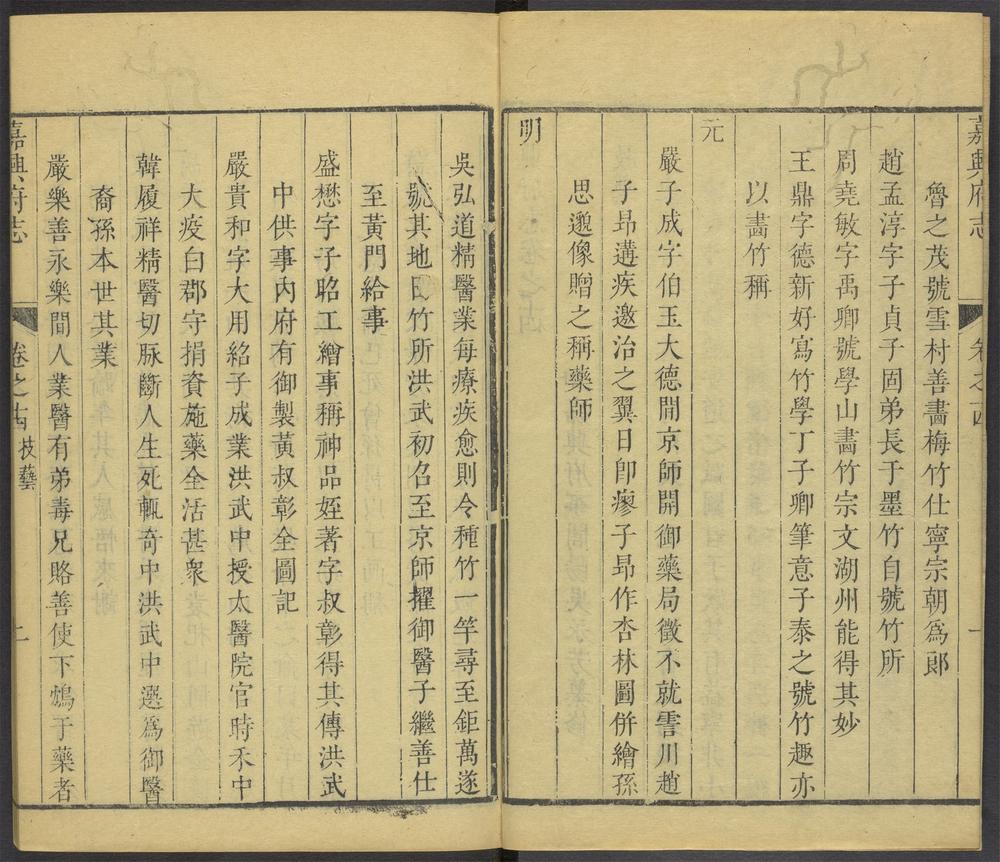 嘉興府志
卷之十四
一
魯之茂號雪村善畵梅竹仕寧宗朝爲郎
趙孟淳字子貞子固弟長于墨竹自號竹所
周堯敏字禹卿號學山畵竹宗文湖州能得其妙
王鼎字德新好寫竹學丁子卿筆意子泰之號竹趣亦
以畵竹稱
元
嚴子成字伯玉大德間京師開御藥局徵不就霅川趙
子昻遘疾邀治之翼日卽瘳子昻作杏林圖倂繪孫
思邈像贈之稱藥師
明
吳弘道精醫業每療疾愈則令種竹一竿尋至鉅萬遂
號其地曰竹所洪武初召至京師擢御醫子繼善仕
至黃門給事
盛懋字子昭工繪事稱神品姪著字叔彰得其傳洪武
中供事內府有御製黃叔彰全圖記
嚴貴和字大用紹子成業洪武中授太醫院官時禾中
大疫白郡守捐資施藥全活甚衆
韓履祥精醫切脉斷人生死輒奇中洪武中選爲御醫
裔孫本世其業
嚴樂善永樂間人業醫有弟毒兄賂善使下鴆于藥者
嘉興府志
卷之十四
技藝
二